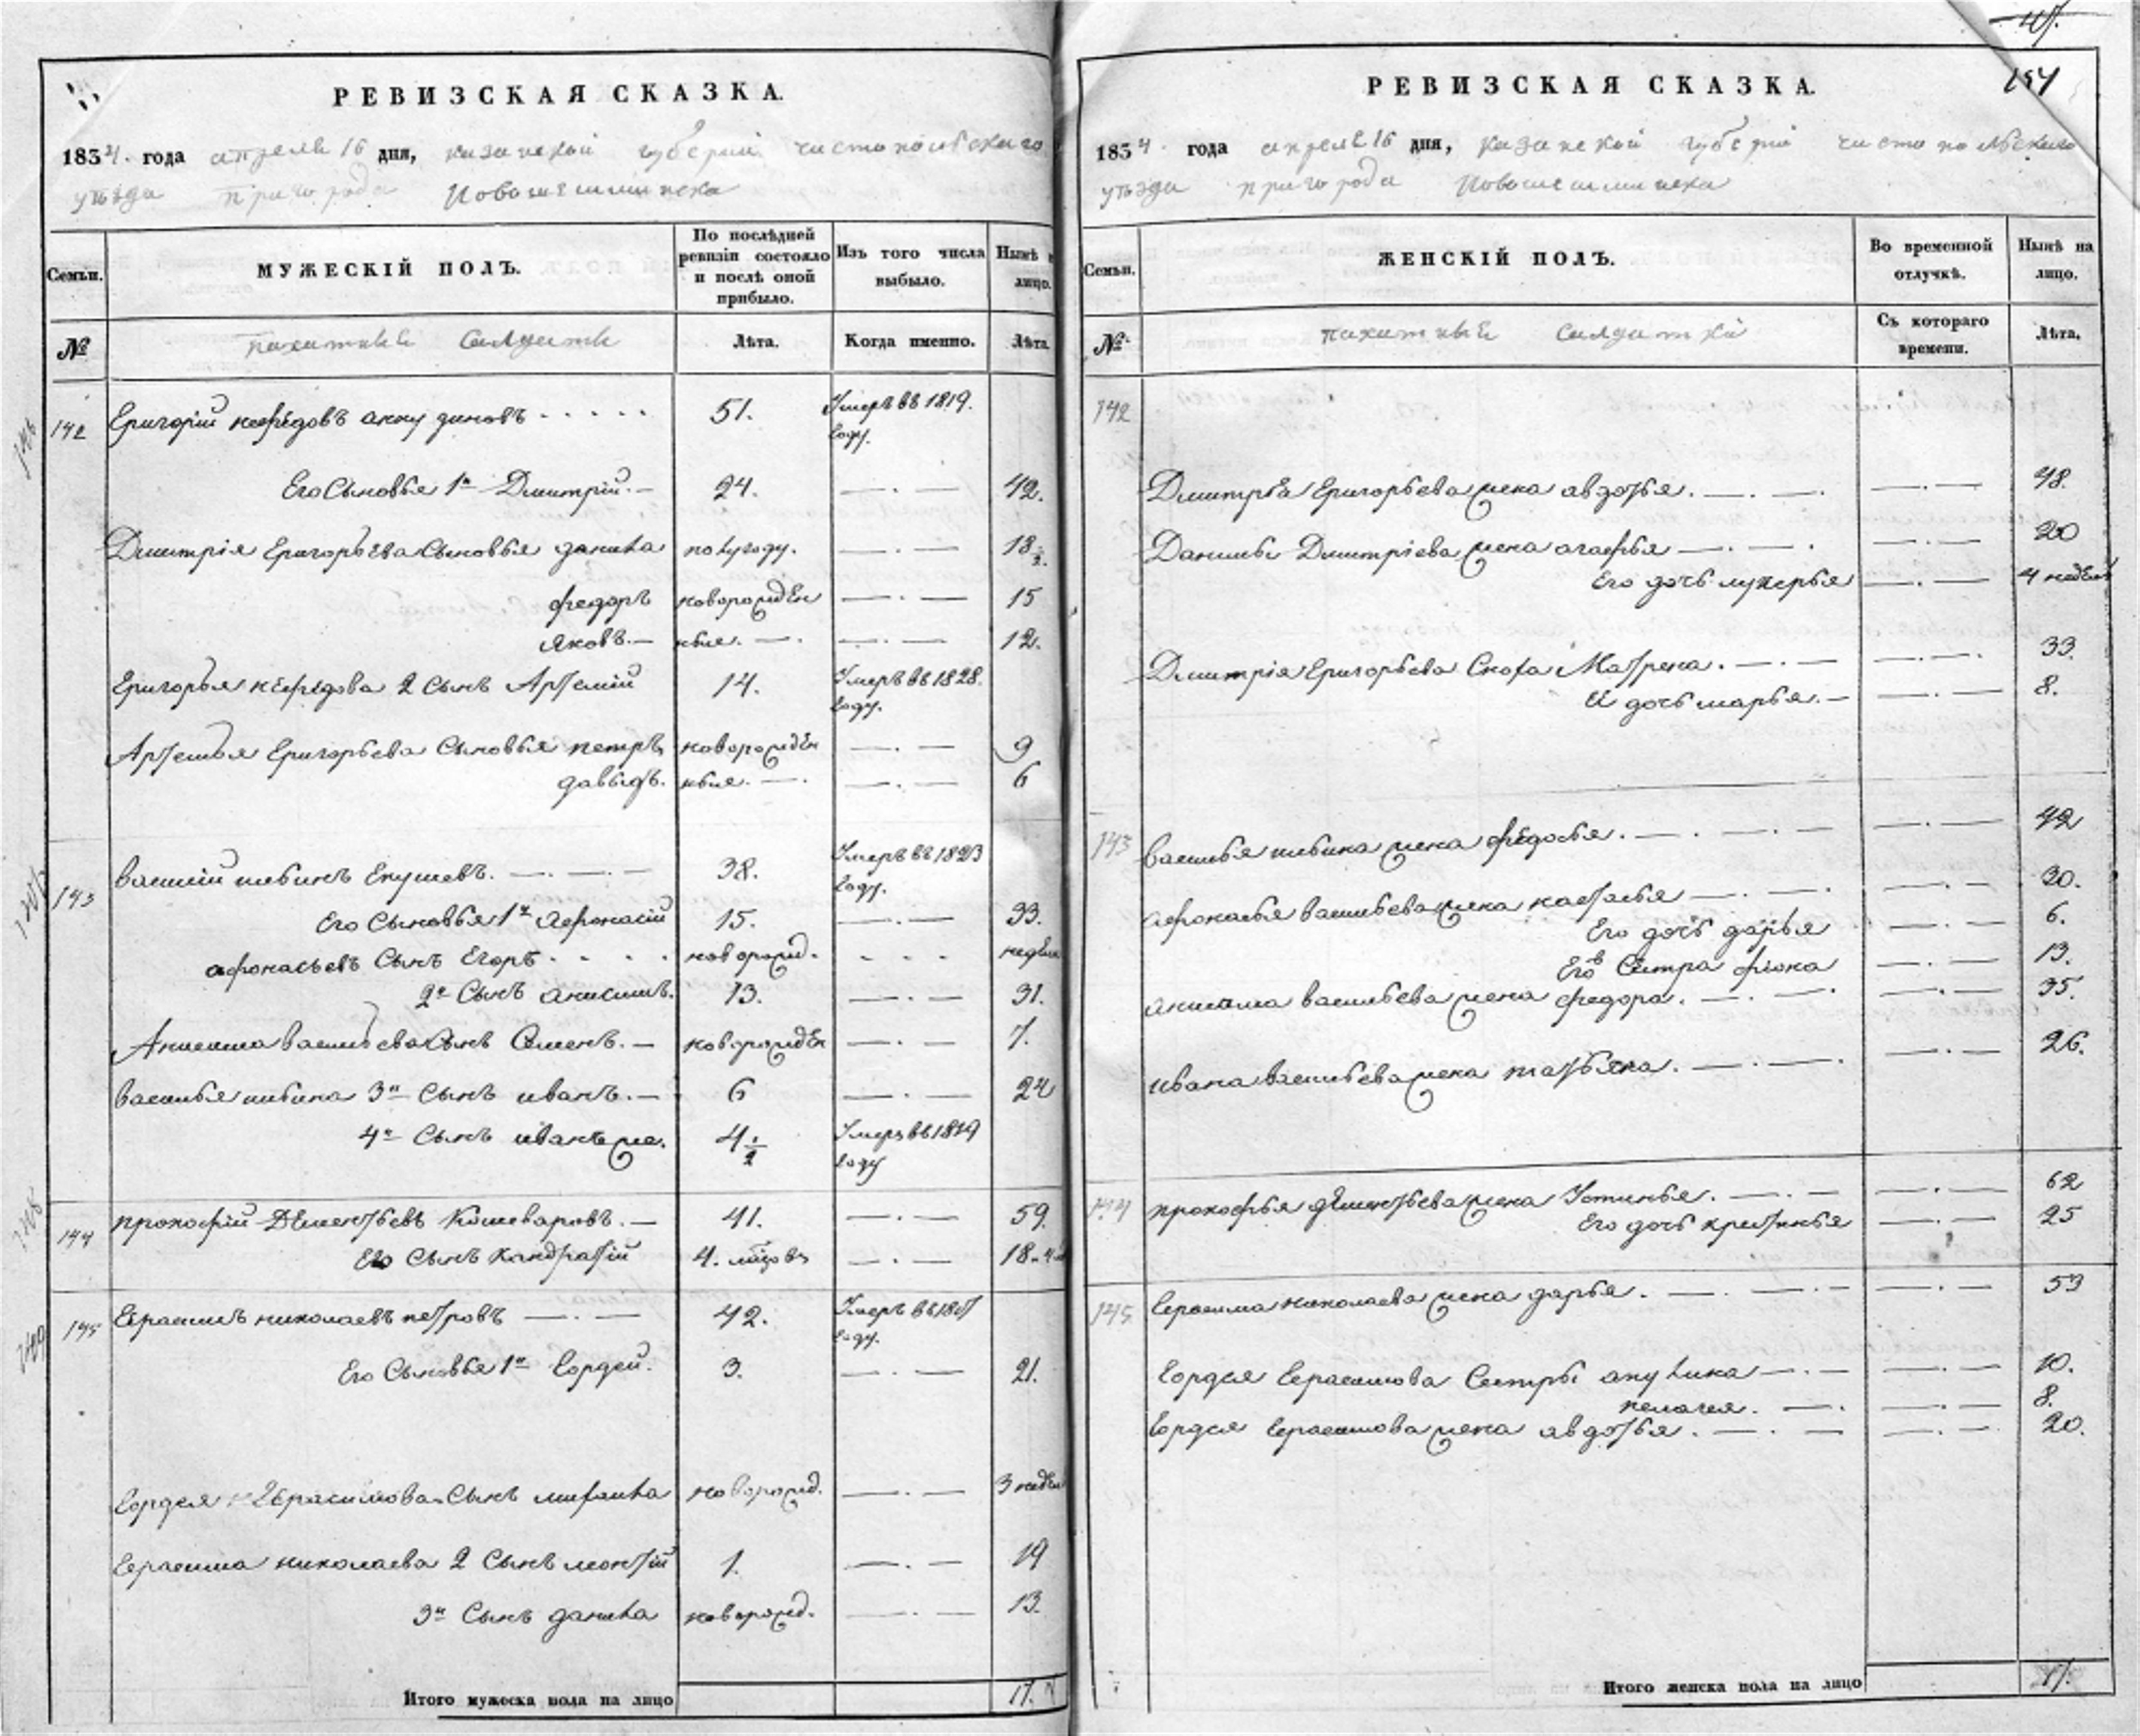 РЕВИЗСКАЯ СКАЗКА.
1834 года апреля 16 дня, казанской губернии чистопольскаго
уѣзда пригорода Новошешминска
Семьи.
МУЖЕСКІЙ ПОЛЪ.
По послѣдней ревизіи состояло и послѣ оной прибыло.
Изъ того числа выбыло.
Нынѣ на лицо.
№
пахатные солдаты
Лѣта.
Когда именно.
Лѣта.
142 Григорій нефедовъ анкудиновъ 51. Умеръ въ 1819. году.
Его Сыновья 1й Дмитрій. 24. 42.
Дмитрія Григорьева Сыновья данила полугоду. 18 1/2.
федоръ новорожден 15
яковъ. ные. 12.
Григорья нефедова 2 Сынъ Артемій 14. Умеръ въ 1828. году.
Артемья Григорьева Сыновья петръ новорожден 9
давыдъ. ные. 6
143 василій ильинъ Екушевъ. 38. Умеръ въ 1823 году.
Его Сыновья 1й Афонасій 15. 33.
афонасьевъ Сынъ Егоръ новорожд.
2й Сынъ анисимъ. 13. 31.
Анисима васильева Сынъ Семенъ. новорожден 7.
василья ильина 3й Сынъ иванъ. 6 24
4й Сынъ иванъ же. 4 1/2 Умеръ въ 1819 году
144 прокофій Дементьевъ Кошеваровъ. 41. 59.
Его Сынъ Кандратій 4. мѣцовъ 18. 4
145 Герасимъ николаевъ петровъ 42. Умеръ въ году.
Его Сыновья 1й Гордей. 3. 21.
Гордея Герасимова Сынъ михаила новорожд. 3 недѣли
Герасима николаева 2 Сынъ монтій 1. 19
3й Сынъ данила новорожд. 13.
Итого мужеска пола на лицо 17.
154
РЕВИЗСКАЯ СКАЗКА.
1834 года апреля 16 дня, казанской губерніи чистопольскаго
уѣзда пригорода Новошешминска
Семьи.
ЖЕНСКІЙ ПОЛЪ.
Во временной отлучкѣ.
Нынѣ на лицо.
№
пахатные солдатки
Съ котораго времени.
Лѣта.
142
Дмитрея Григорьева жена авдотья. 48.
Данилы Дмитріева жена агафья 20
Его дочь лукерья 4 недели
Дмитрія Григорьева Сноха Матрена. 33.
И дочь марья. 8.
143 василья ильина жена федосья. 42
афонасья васильева жена настасья 30.
Его дочь дарья 6.
Его Сестра фіона 13.
анисима васильева жена федора. 35.
ивана васильева жена татьяна. 26.
144 прокофья дементьева жена Устинья. 62
Его дочь крестинья 25
145. Герасима николаева жена дарья. 53
Гордея Герасимова Сестры акулина 10.
пелагея. 8.
Гордея Герасимова жена авдотья. 20.
Итого женска пола на лицо 17.